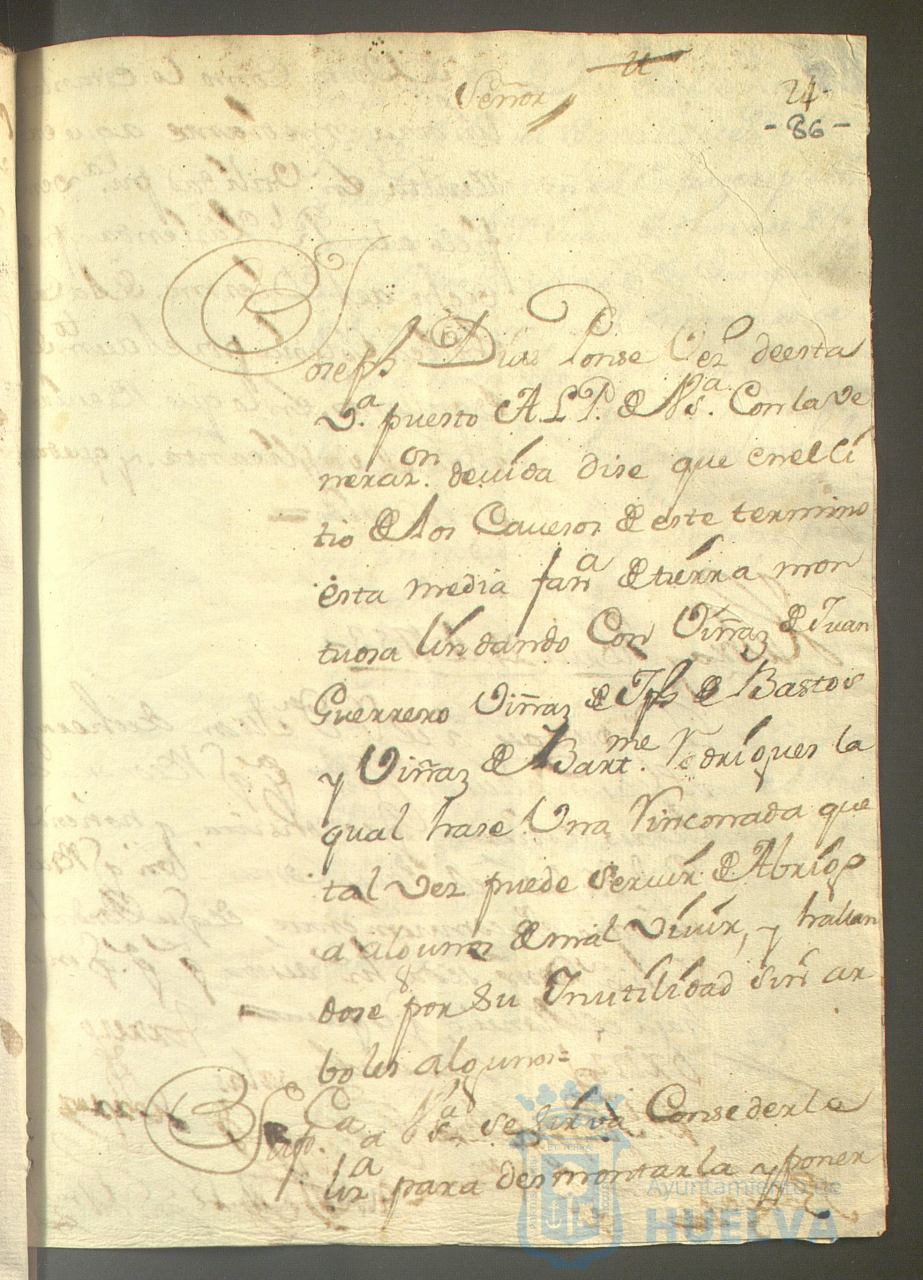 Señor
24
- 86 -
Joseph Dias Ponse Vez.º de esta
V.ª puesto A L P. de V.s.ª Con la Ve
neraz.on devida dise que en el ci
tio de los Caveros de este termino
esta media fan.ª de tierra mon
tuosa lindando Con Viñas de Juan
Guerrero Viñas de Jph de Bastos
y Viñas de Bart.me Rodrigues la
qual hase Una Rinconada que
tal vez puede servir de Abrigo
a algunos de mal vivir, y hallan
dose por su Inutilidad sin ar
boles algunos=
Sup.ca a V.s.ª se sirva Consederle
liz.ª para desmontarla y poner
Ayuntamiento de
HUELVA